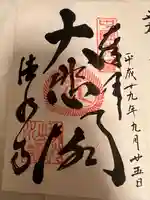 奉拝
平成十九年九月廿五日
大悲閣
清水寺